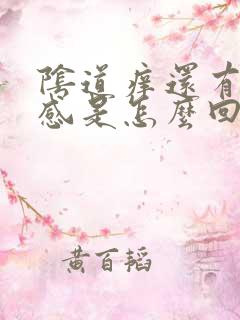 陰道痒還有
感是怎麼回
黃百韜